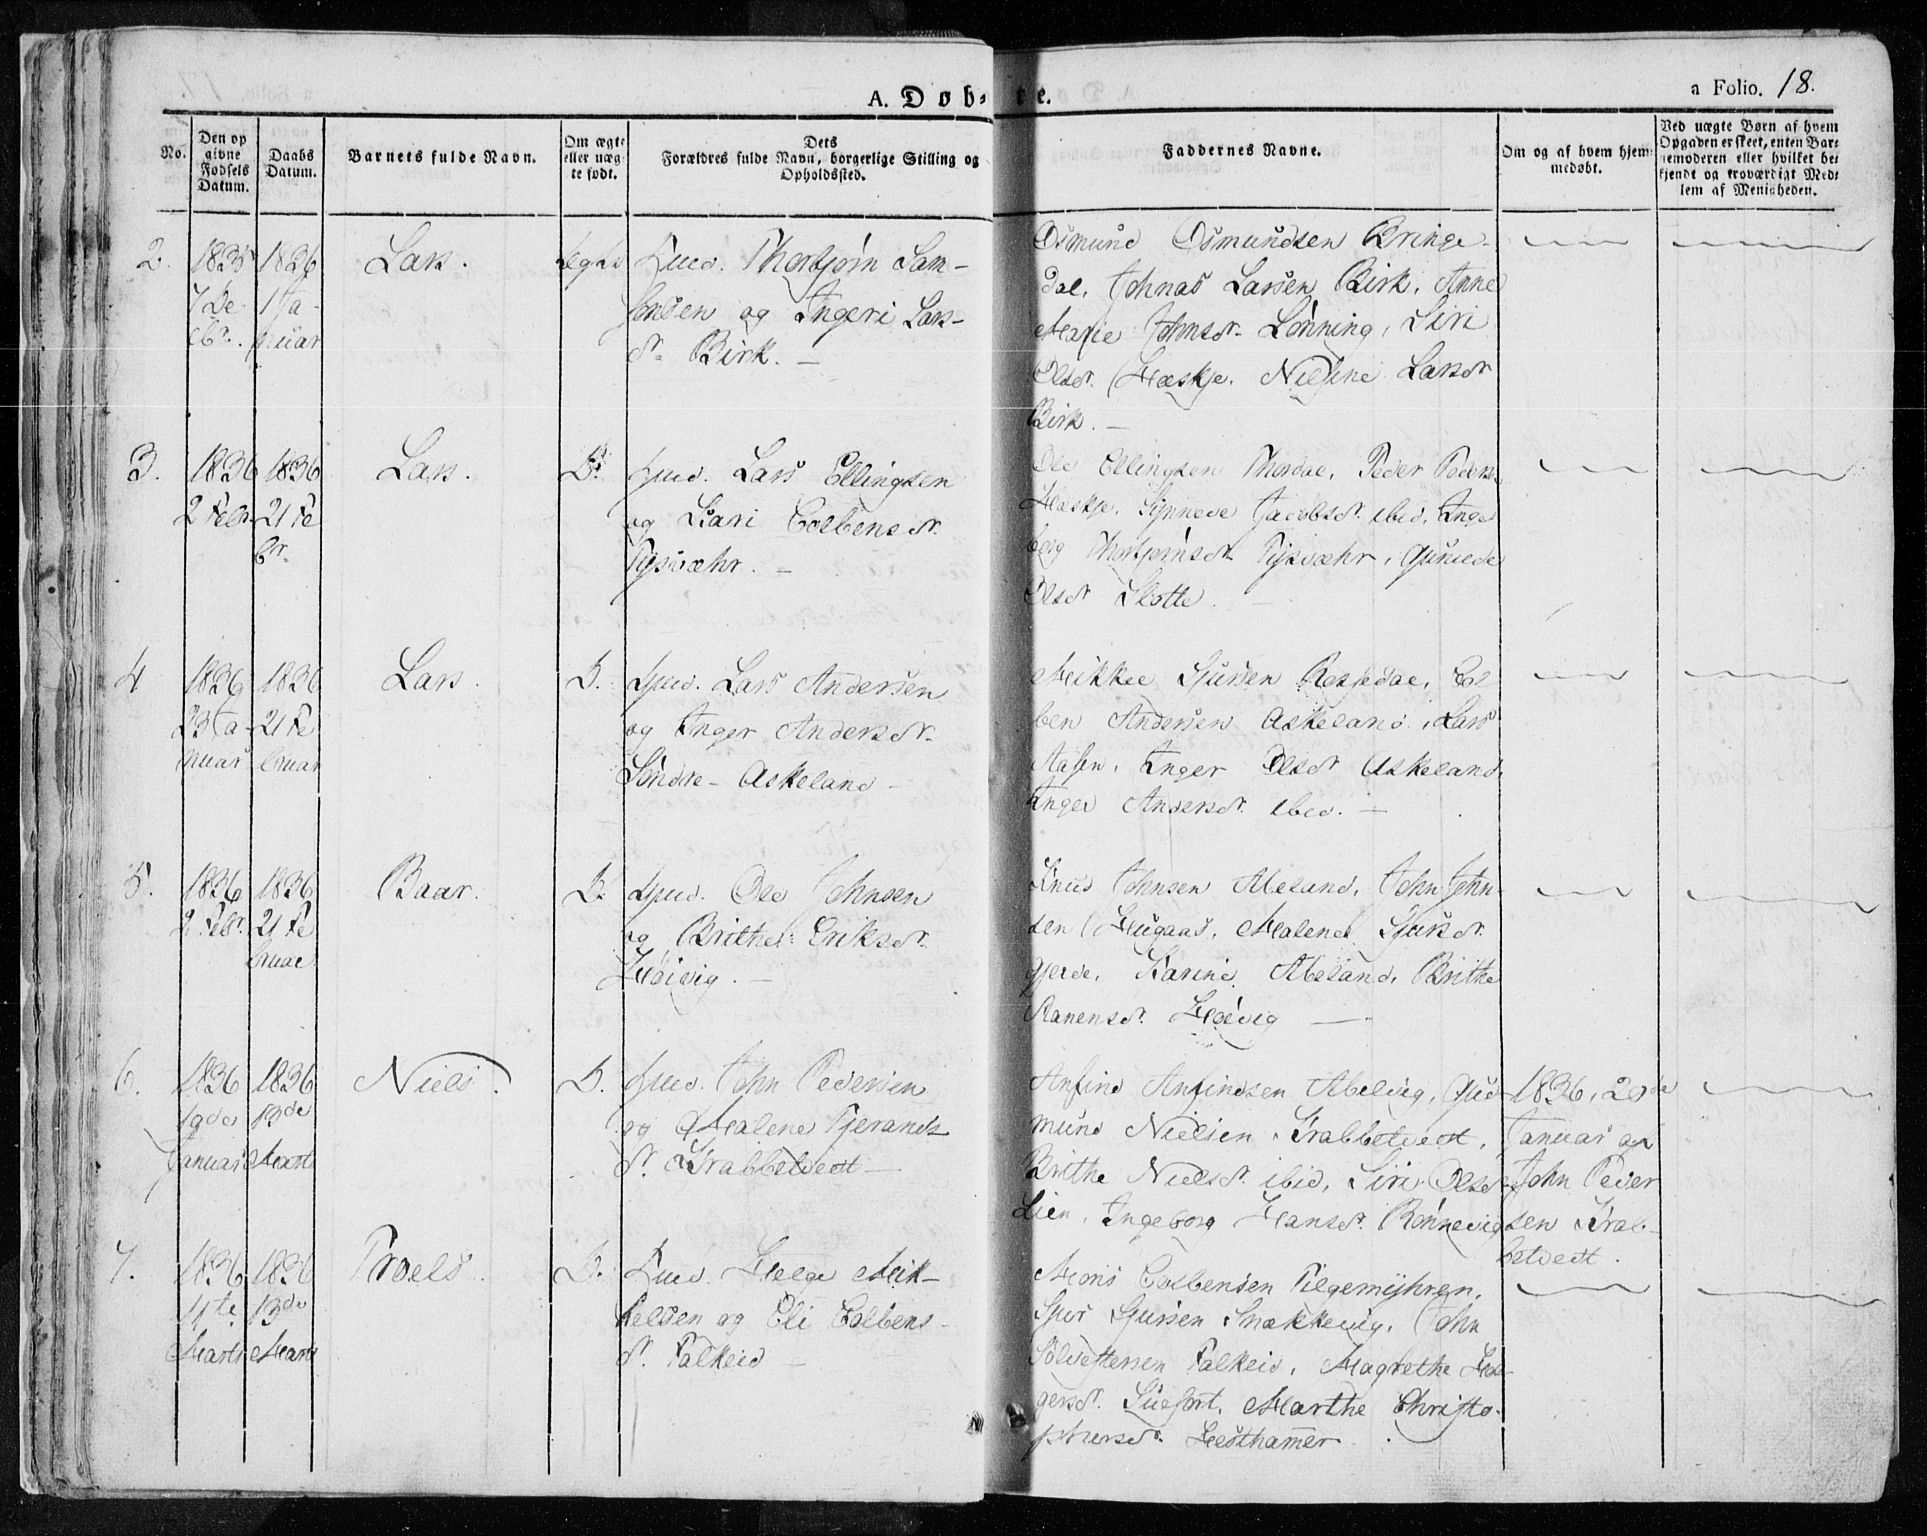 A. Döb- te.
a Folio. 18.
No.
Den op
givne
Födsels
Datum.
Daabs
Datum.
Barnets fulde Navn.
Om ægte
eller uæg-
te födt.
Dets
Forældres fulde Navn, borgerlige Stilling og
Opholdssted.
Faddernes Navne.
Om og af hvem hjem-
medöbt.
Ved uægte Börn af hvem
Opgaven er skeet, enten Bar-
nemoderen eller hvilket be-
kjendt og troværdigt Med-
lem af Menigheden.
2.
1835
7 De
cbr.
1836
1 Ja-
nuar
Lars.
Thorbjørn Sam-
sonsen og Ingeri Lars-
dr Birk. —
Osmund Osmundsen Bringe-
dal, Johnas Larsen Birk, Anne
Marie Johnsdr Lønning, Siri
Olsdr. Hæskje. Nielsine Larsdr
Birk. —
3.
1836
2 Febr.
1836
21 Fe
br.
Lars.
D.
Gmd. Lars Ellingsen
og Kari Colbensdr.
Tysvæhr. —
Ole Ellingsen Peder Peders.
Hæskje. Synneve Jacobsdr. ibid, Inge
borg Thorbjørnsdr. Tysvæhr,
Olsdr Slotte.
4
1836
23 Ja-
nuar
1836
21 Fe
bruar
Lars.
D.
Gmd. Lars Andersen
og Inger Andersdr.
Søndre- Askeland
Mikkel Sjursen Col
ben Andersen Askeland, Lars
Aasen. Inger Olsdr Askeland.
Inger Andersdr. ibid. —
5.
1836
2 Febr.
1836
21 Fe
bruar
Baar.
D.
Gmd. Ole Johnsen
og Brithe Eriksdr.
Høivig. —
Knud Johnsen Abeland, John John-
sen Haugaas, Malene Sjursdr.
Gjerde, Karine Abeland, Brithe
Høivig —
6.
1836
19de
Januar
1836
13de
Marts
Niels.
D.
Gmd. John Pedersen
og Malene Tjerands
dr. Krabbetvedt —
Anfind Anfindsen Abelvig, Gud-
mund Nielsen Krabbetvedt,
Brithe Nielsdr. ibid, Siri Olsdr.
Lien, Ingeborg Hansdr. Rønnevig
1836, 20de
Januar af
John Peder
sen Krab-
betvedt.
7.
1836
4te
Marts
1836
13de
Marts
Troels.
D.
Helge Mik-
kelsen og Eli Colbens-
dr. Falkeid —
Mons Colbensen
Sjur Sjursen Snækkevig. John
Sølvestersen Falkeid, Magrethe Hol-
gersdr. Marthe Christo-
phersdr. Hesthamer.